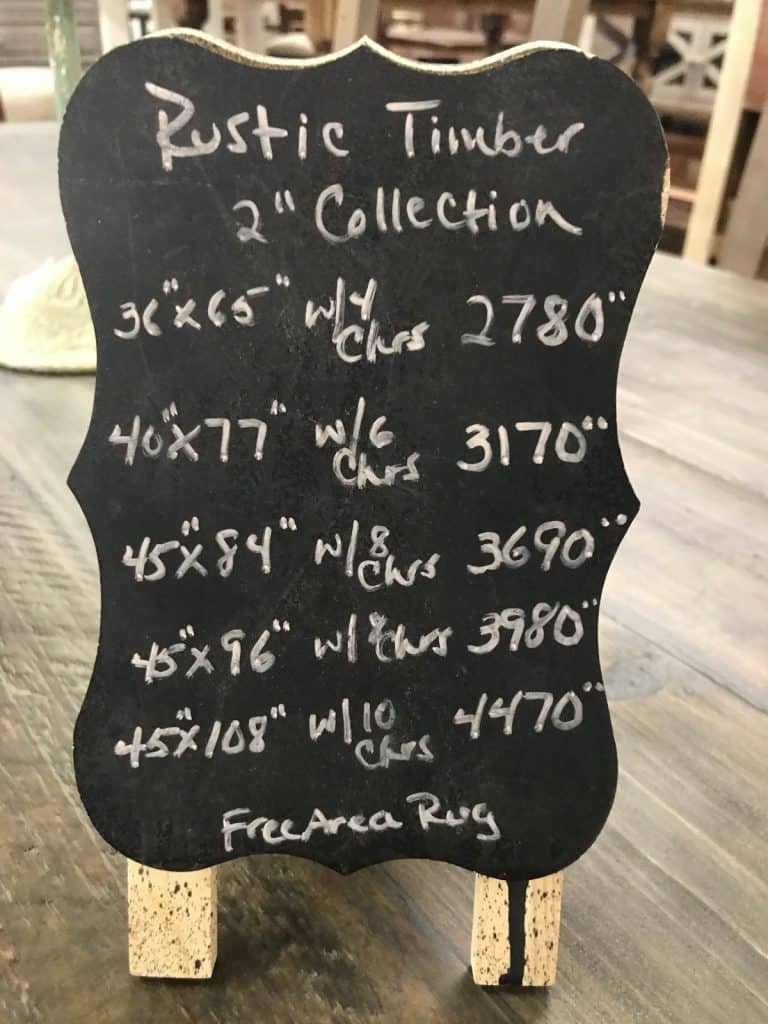 Rustic Timber
2" Collection
36"x65" w/4 Chrs 2780"
40"x77" w/6 Chrs 3170"
45"x84" w/8 Chrs 3690"
45"x96" w/8 Chrs 3980"
45"x108" w/10 Chrs 4470"
Free Area Rug